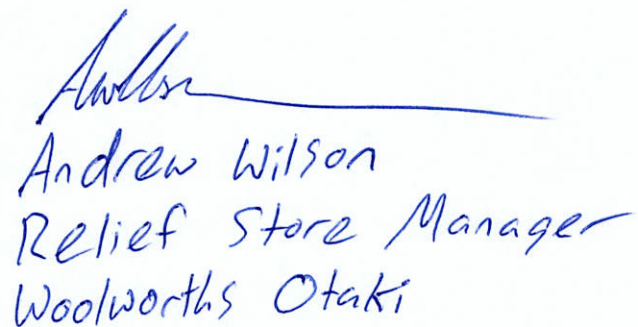 AWilson
Andrew Wilson
Relief Store Manager
Woolworths Otaki